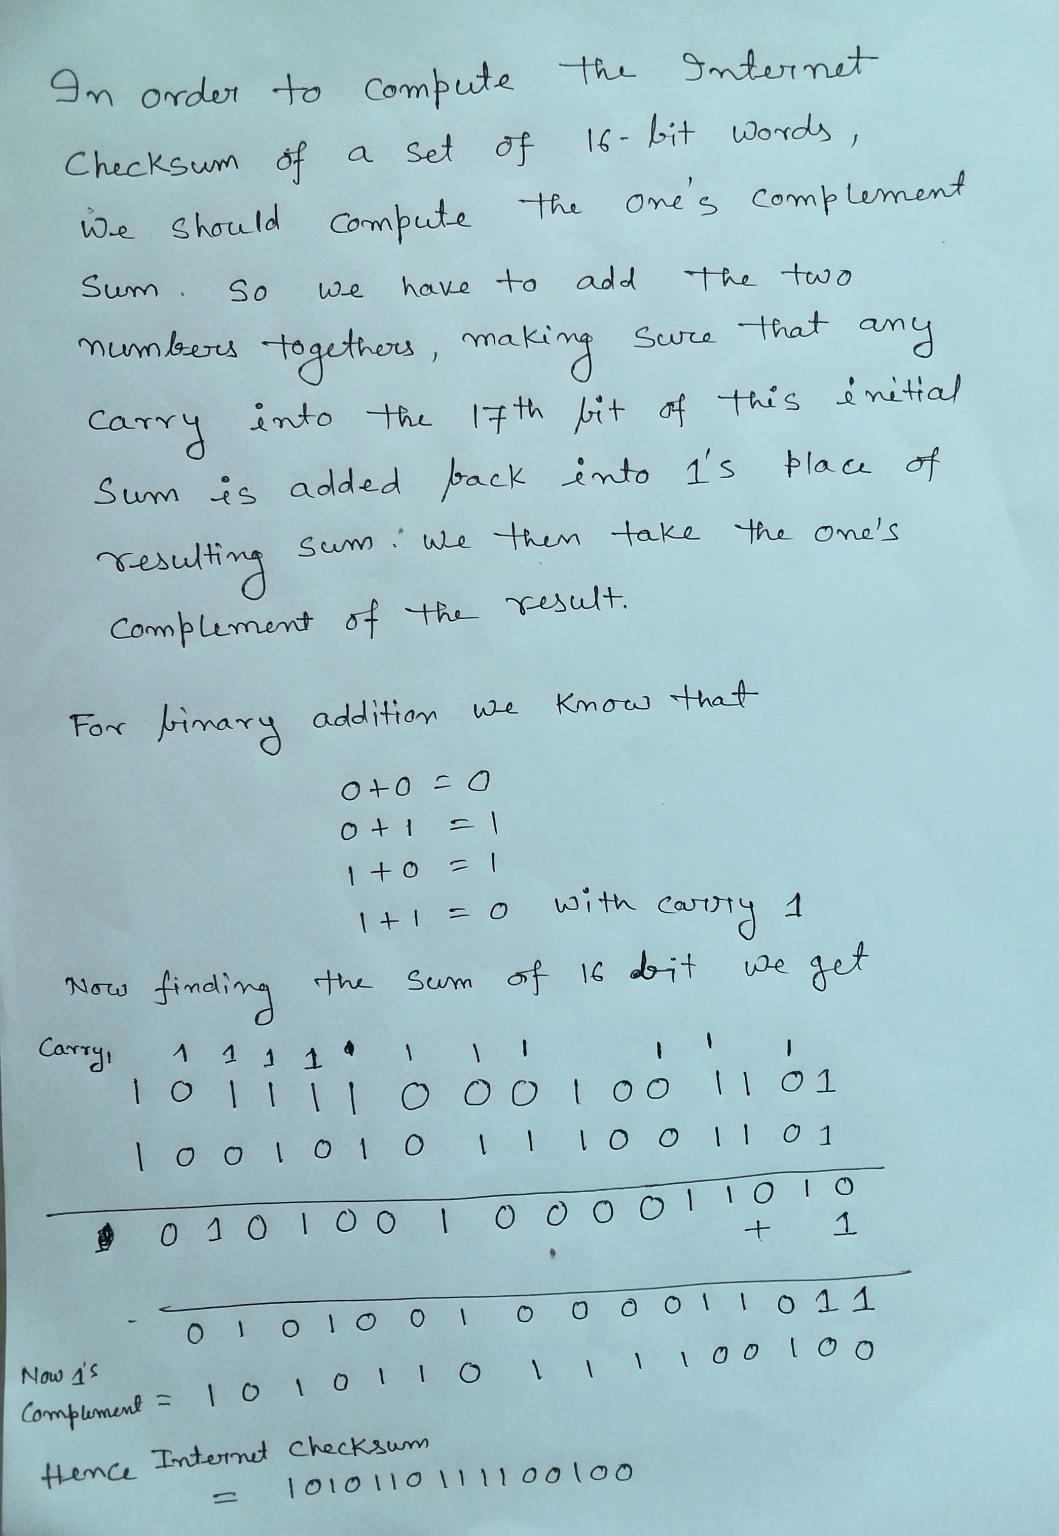 In order to compute the Internet
Checksum of a set of 16-bit words,
We should compute the one's complement
Sum. So we have to add the two
numbers togethers, making sure that any
carry into the 17th bit of this initial
Sum is added back into 1's place of
resulting sum. We then take the one's
complement of the result.
For binary addition we know that
0+0 = 0
0+1 = 1
1+0 = 1
1+1 = 0 with carry 1
Now finding the sum of 16 bit we get
Carry, 1 1 1 1 1 1 1 1 1 1
1 0 1 1 1 1 0 0 0 1 0 0 1 1 0 1
1 0 0 1 0 1 0 1 1 1 0 0 1 1 0 1
0 1 0 1 0 0 1 0 0 0 0 1 1 0 1 0
+ 1
0 1 0 1 0 0 1 0 0 0 0 1 1 0 1 1
Now 1's
Complement = 1 0 1 0 1 1 0 1 1 1 1 0 0 1 0 0
Hence Internet Checksum
= 1010110111100100